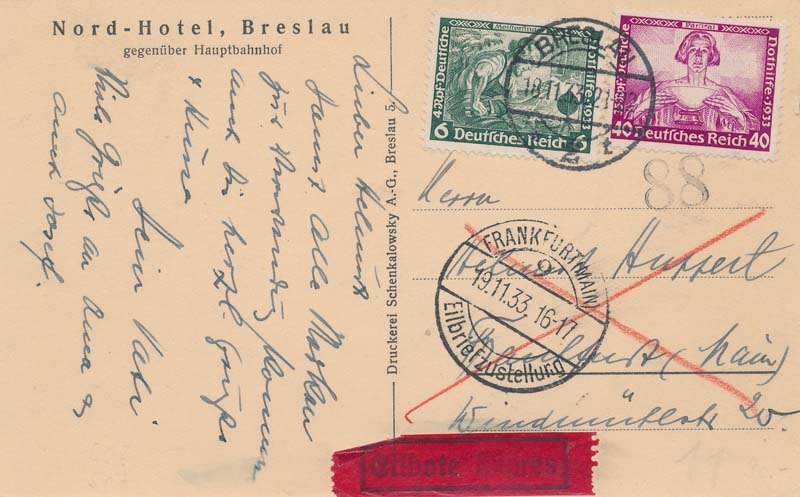 Nord-Hotel, Breslau
gegenüber Hauptbahnhof
Lieber Helmut
Samt Alle
zur
auch Dir herzl. Grüße
Dein Vati
Viele Grüße an Anna &
auch Josef.
Druckerei Schenkalowsky A.-G., Breslau 5.
4 Rpf Deutsche
Nothilfe · 1933
6 Deutsches Reich 6
Parsifal
35 Rpf Deutsche
Nothilfe · 1933
40 Deutsches Reich 40
BRESLAU
18.11.33
88
Herrn
Helmut Huppert
Frankfurt (Main)
Windmühlstr 20.
FRANKFURT (MAIN)
9
19.11.33. 16-17
Eilbriefzustellung
Eilbote Exprès